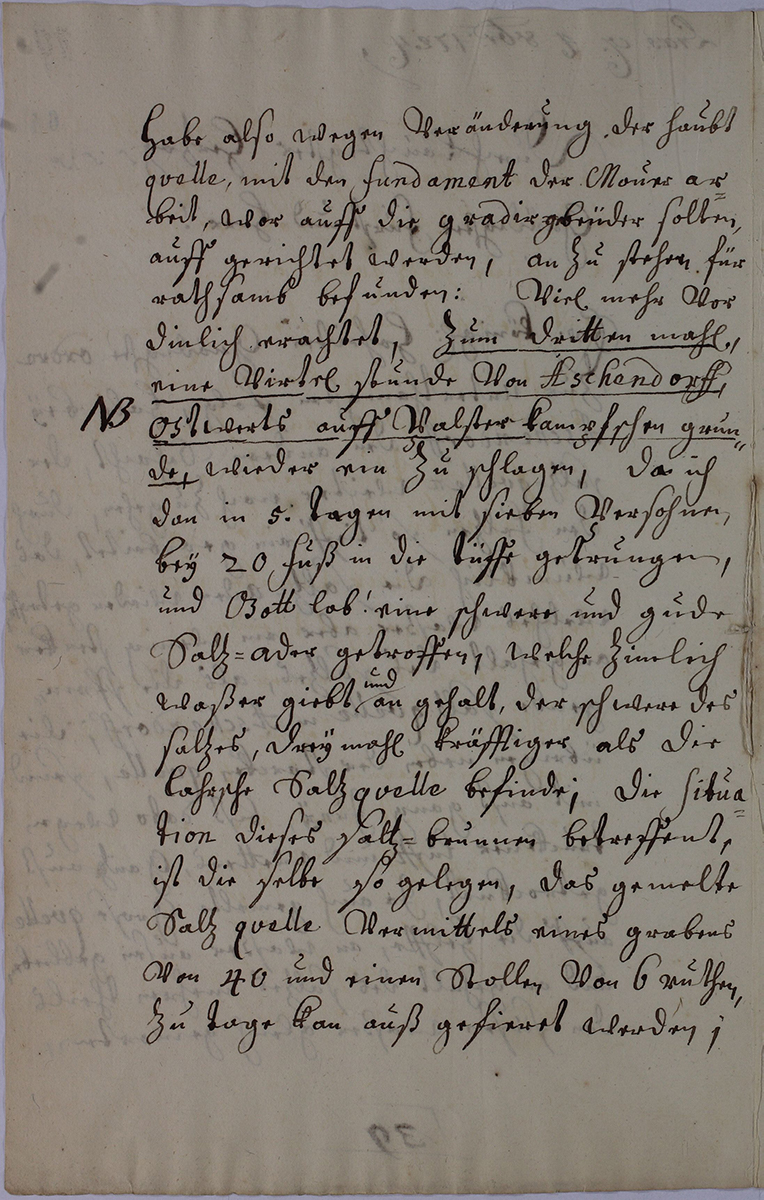 habe also wegen Veränderung der haubt
qvelle, mit den fundament der Mouer ar=
beit, wor auff die gradirgebeüder solten,
auff gerichtet werden, an zu stehen für
rathsamb befunden: Viel mehr Vor
dinlich erachtet, Zum dritten mahl,
eine Virtel stunde Von Aschendorff,
NB Ostwerts auff Palsterkampfschen grun=
de, wieder ein zu schlagen, da ich
dan in 5. tagen mit sieben Persohnen,
bey 20 fuß in die tüffe getrungen,
und Gott lob! eine schwere und gude
Saltz=ader getroffen, welche zimlich
waßer giebt und an gehalt, der schwere des
saltzes, dreymahl kräfftiger als die
lahrsche Saltzqvelle befinde; die situa=
tion dieses saltz=brunnen betreffent,
ist die selbe so gelegen, das gemelte
Saltz qvelle Vermittels eines grabens
Von 40 und einen Stollen Von 6 ruthen,
Zu tage kan auß gefieret werden;
39